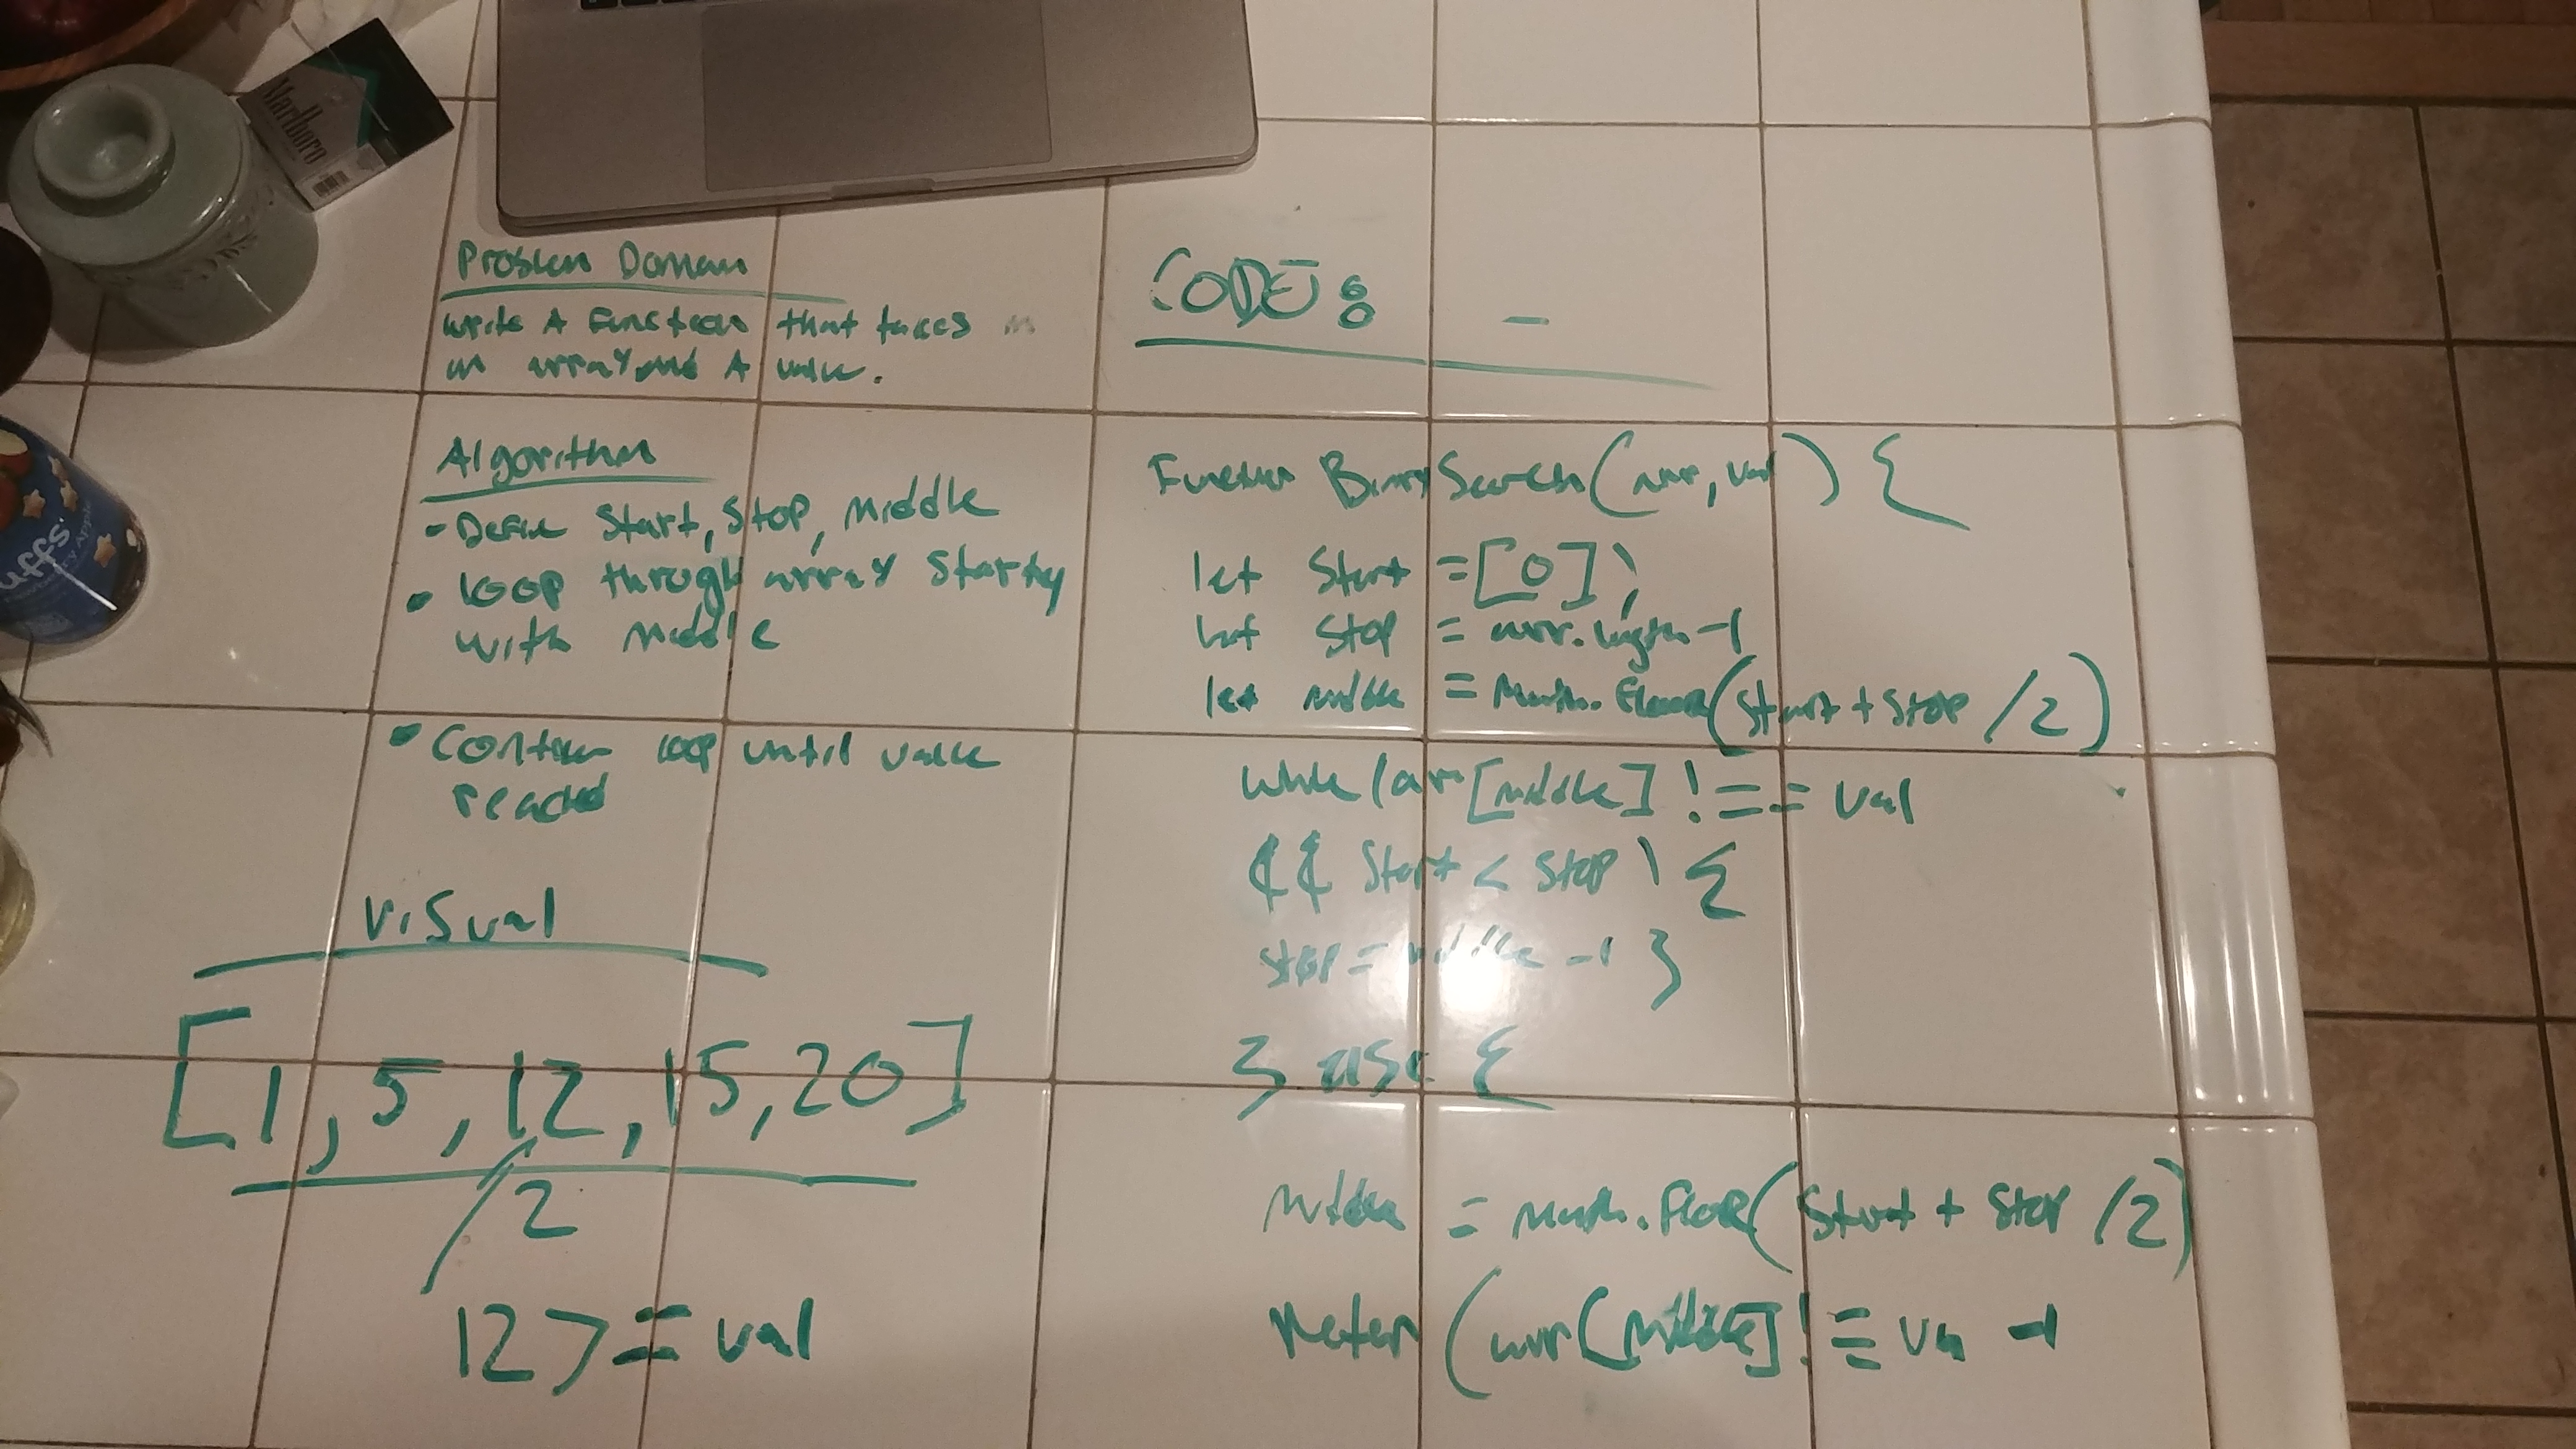 Marlboro
uffs
Problem Domain
write A function that takes in
an array and A value.
Algorithm
- Define Start, Stop, middle
• loop through array starting
with middle
• Continue loop until value
reached
Visual
[1, 5, 12, 15, 20]
/2
12 >= val
CODE:
Function BinarySearch(arr, val) {
let Start = [0];
let Stop = arr.length-1
let middle = Math.Floor(Start + Stop /2)
while (arr[middle] !== val
&& Start < Stop) {
stop = middle -1 }
} else {
middle = Math.Floor(Start + Stop /2)
(arr[middle] !== -1